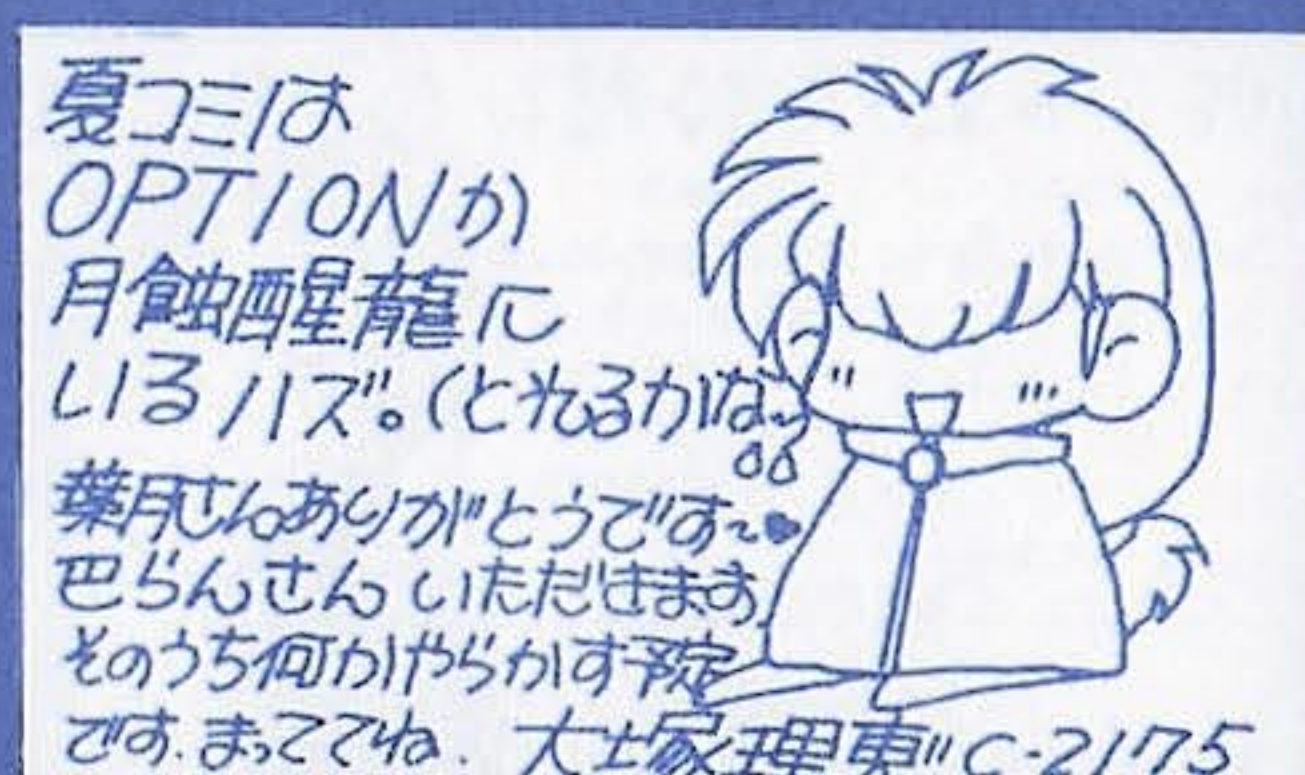 夏コミは
OPTIONか
月蝕醒龍に
いるハズ。(とれるかな〜
葉月さんありがとうです〜♥
巴らんさんいただきます
そのうち何かやらかす予定
です.まっててね. 大塚理恵 C-2175